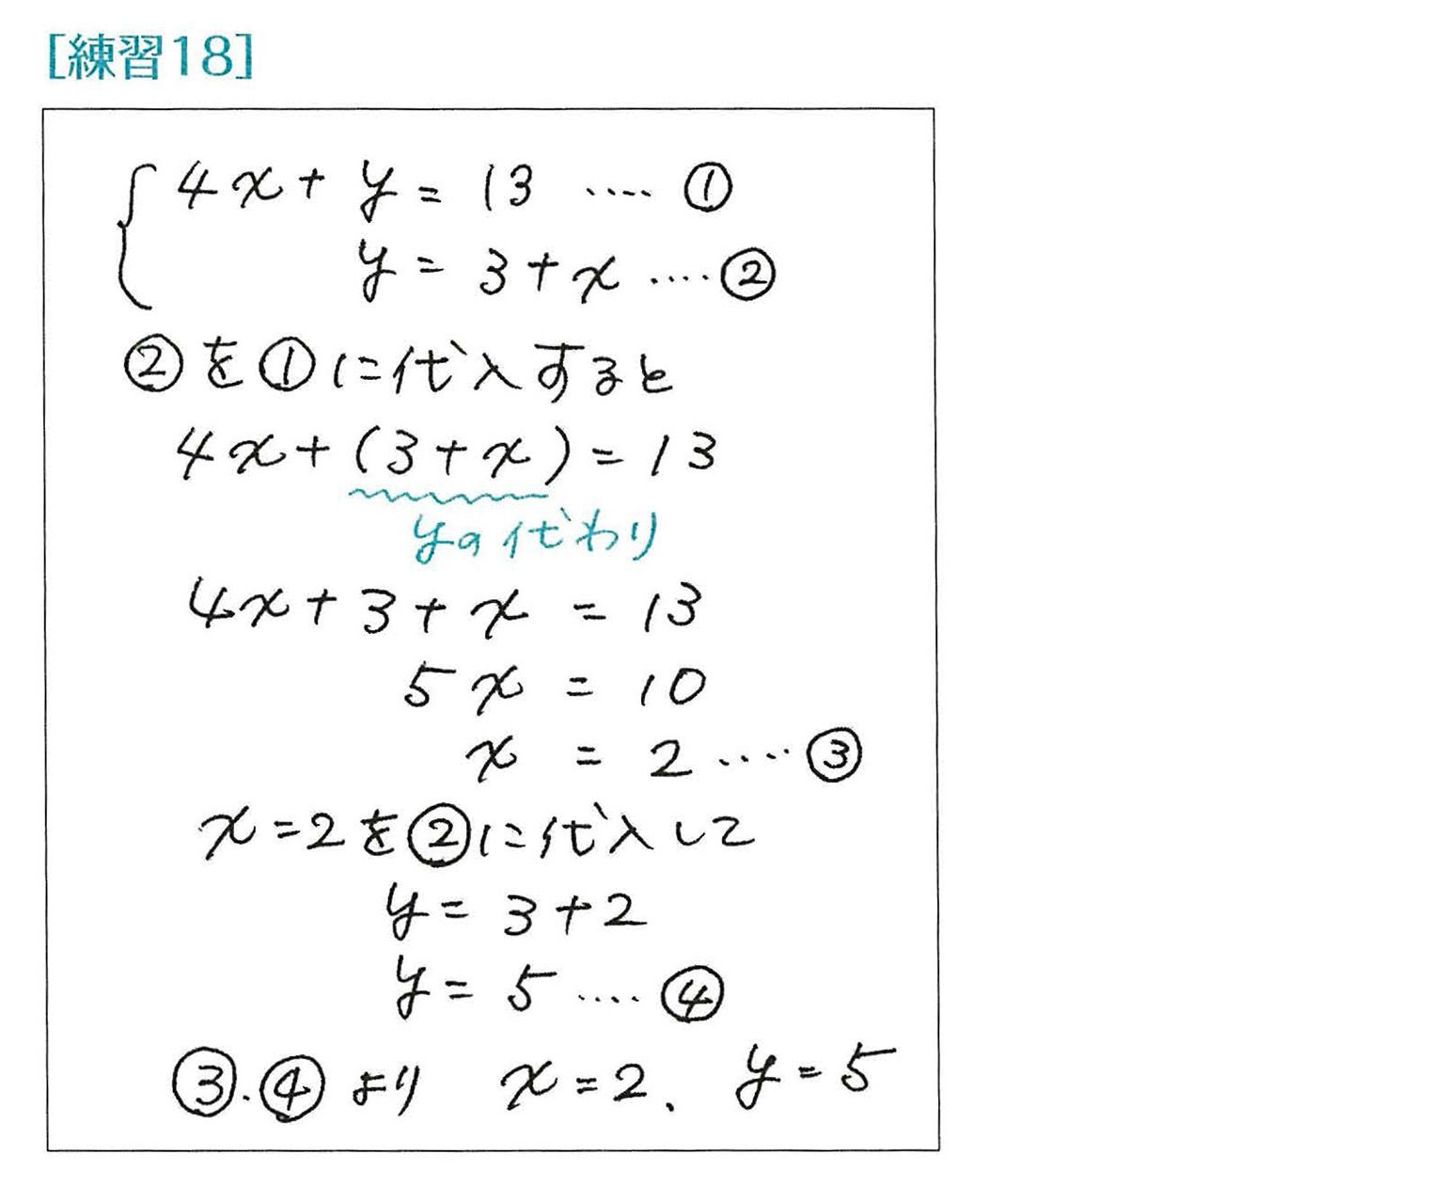 [練習18]
4x + y = 13 ‥‥ ①
y = 3 + x ‥‥ ②
②を①に代入すると
4x + (3 + x) = 13
yの代わり
4x + 3 + x = 13
5x = 10
x = 2 ‥‥ ③
x = 2を②に代入して
y = 3 + 2
y = 5 ‥‥ ④
③.④より x = 2、 y = 5